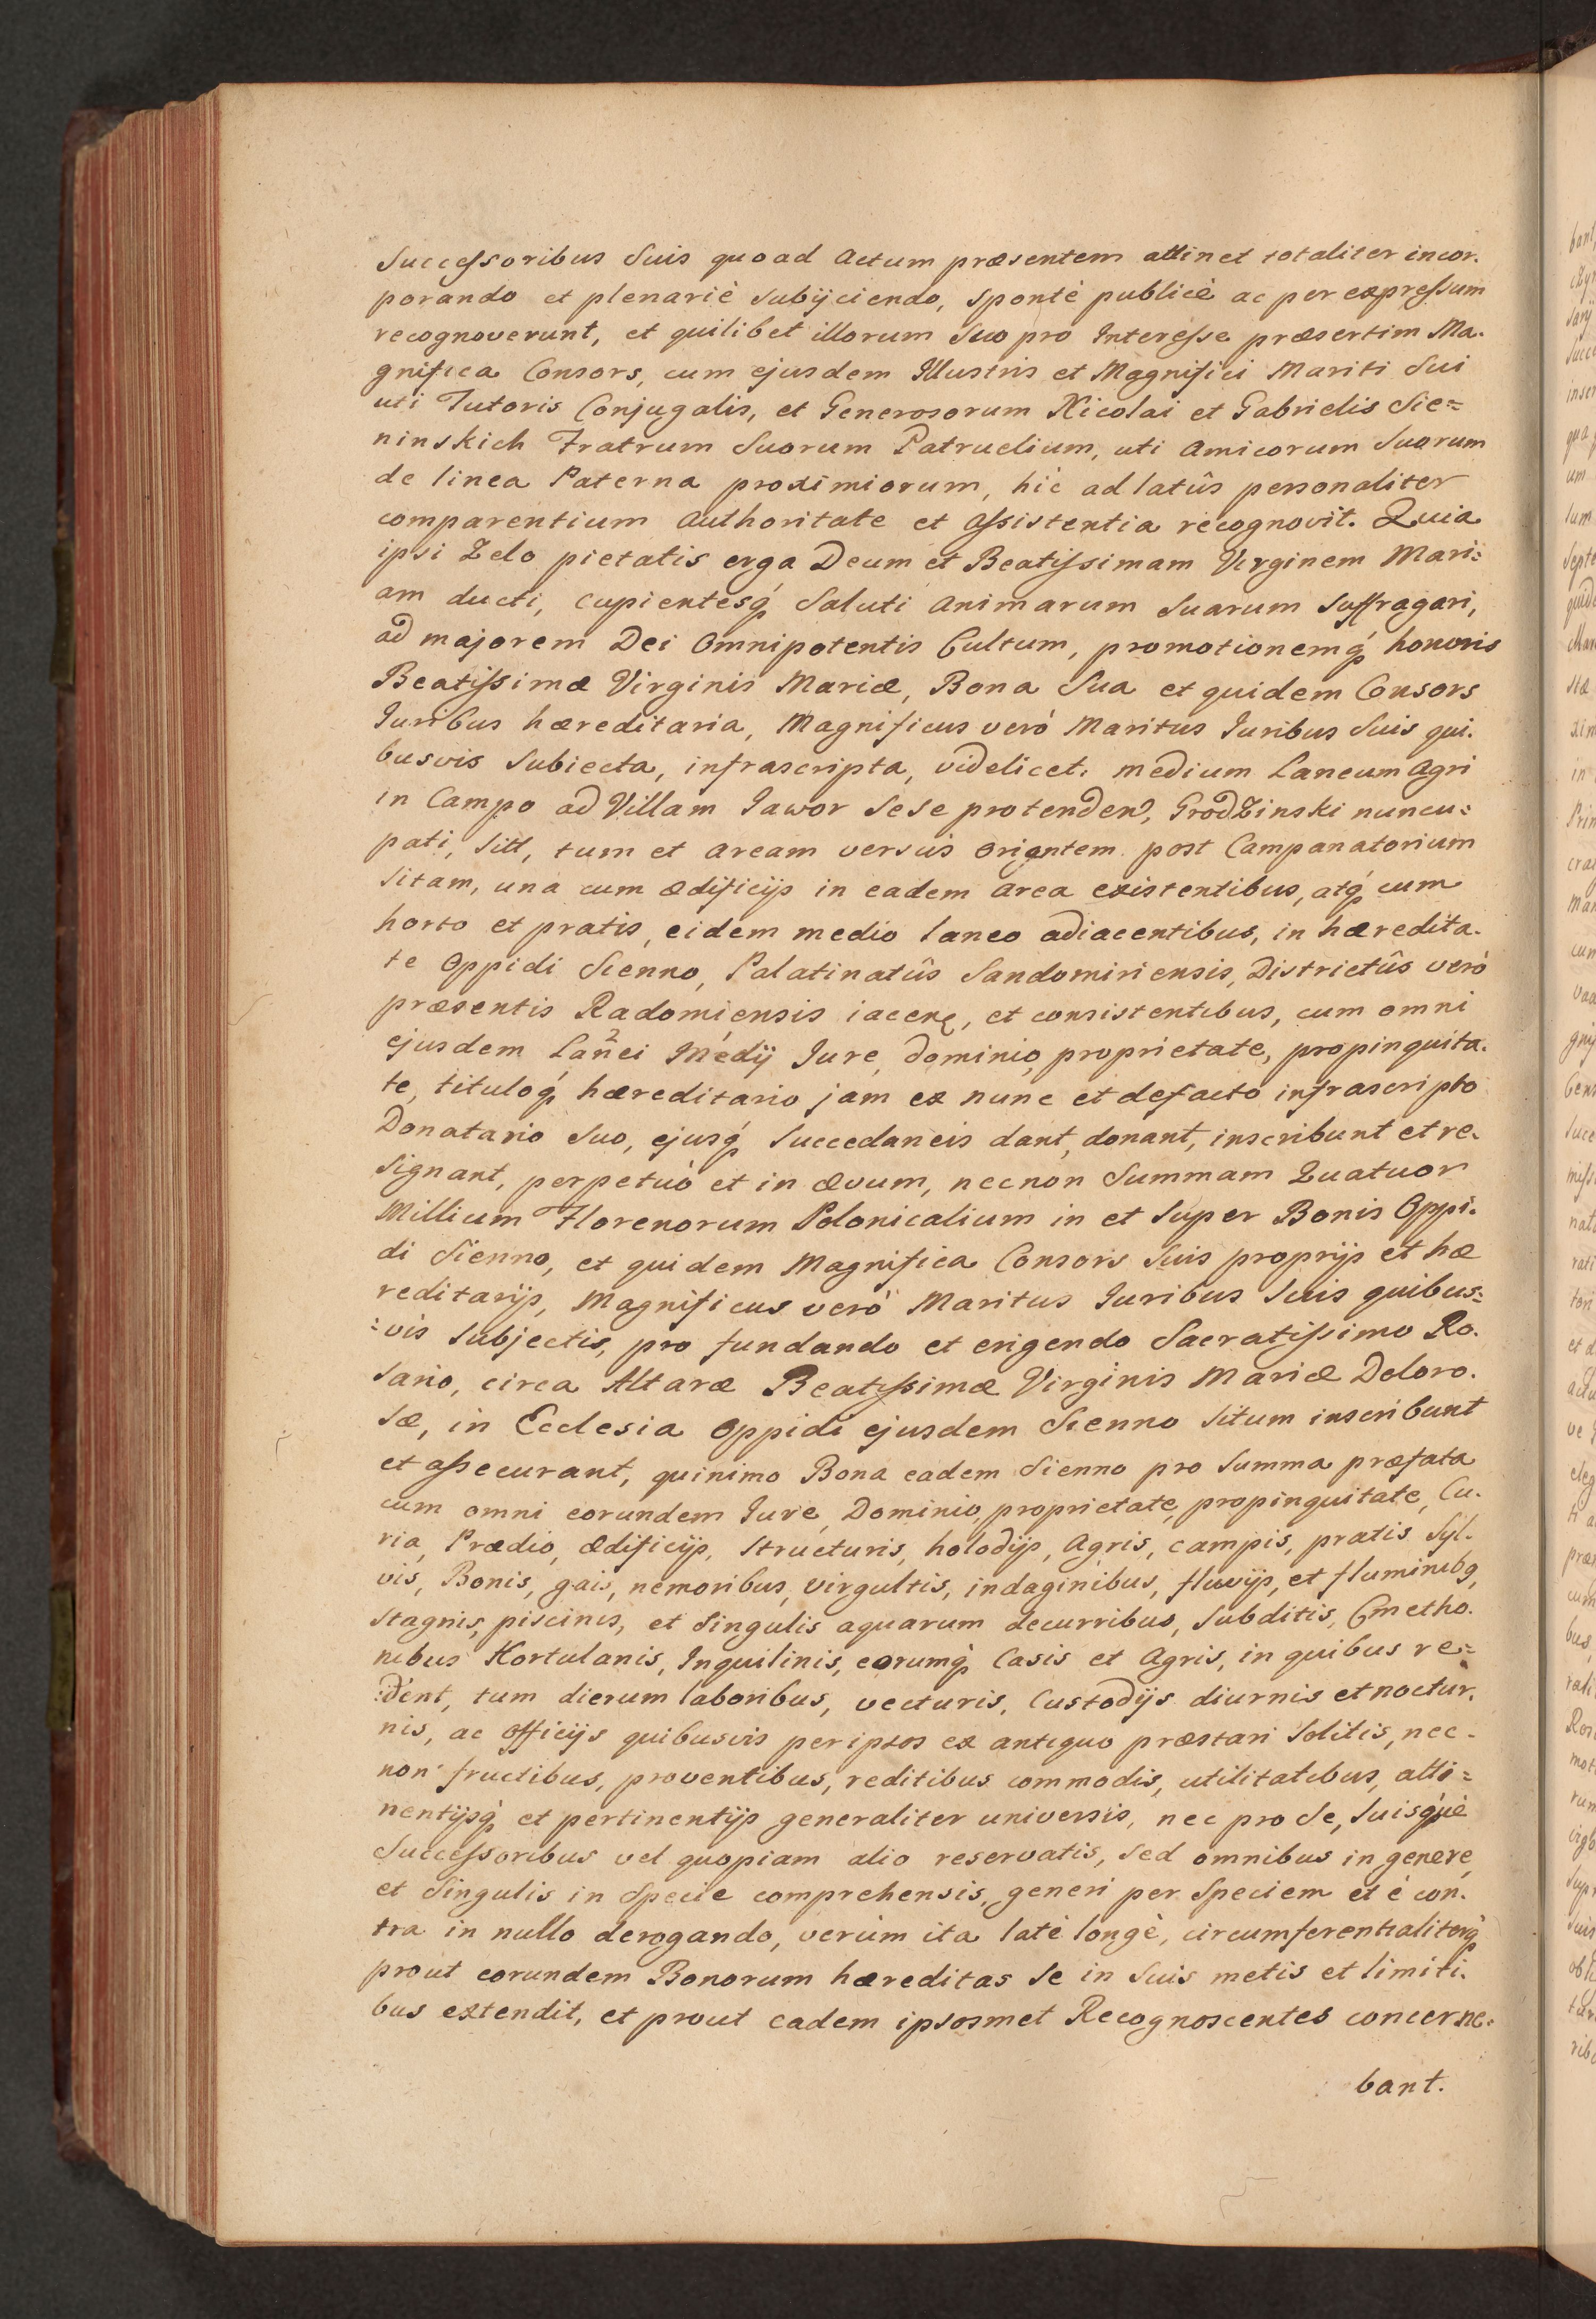 Successoribus Suis quoad Actum præsentem attinet totaliter incor.
porando et plenariè subijciendo, spontè publicè ac per expressum
recognoverunt, et quilibet illorum suo pro Interesse præsertim Ma.
gnifica Consors, cum ejusdem Illustris et Magnifici Mariti Sui
uti Tutoris Conjugalis, et Generosorum Nicolai et Gabrielis Sie=
ninskich Fratrum Suorum Patruelium, uti Amicorum Suorum
de linea Paterna proximiorum, hìc ad latûs personaliter
comparentium Authoritate et Assistentia recognovit. Quia
ipsi Zelo pietatis erga Deum et Beatissimam Virginem Mari=
am ducti, cupientesq́ Saluti Animarum Suarum suffragari,
ad majorem Dei Omnipotentis Cultum, promotionemq́ honoris
Beatissimæ Virginis Mariæ, Bona Sua et quidem Consors
Iuribus hæreditaria, Magnificus verò Maritus Iuribus Suis qui.
busvis Subiecta, infrascripta, videlicet: medium Laneum Agri
in Campo ad Villam Jawor Sese protenden, Grodzinski nuncu=
pati, Sitt, tum et Aream versùs orientem post Campanatorium
Sitam, una cum ædificijs in eadem area existentibus, atq́ cum
horto et pratis, eidem medio laneo adiacentibus, in hæredita.
te Oppidi Sienno, Palatinatûs Sandomiriensis, Districtûs verò
præsentis Radomiensis iacen, et consistentibus, cum omni
ejusdem Lanei Medij Iure, dominio, proprietate, propinquita.
te, tituloq́ hæreditario jam ex nunc et de facto infrascripto
Donatario Suo, ejusq́ Succedaneis dant, donant, inscribunt et re.
signant, perpetuò et in ævum, necnon Summam Quatuor
Millium Florenorum Polonicalium in et super Bonis Oppi.
di Sienno, et quidem Magnifica Consors Suis proprijs et hæ
reditarijs, Magnificus verò Maritus Iuribus Suis quibus=
=vis subjectis, pro fundando et erigendo Sacratissimo Ro.
sario, circa Altaræ Beatissimæ Virginis Mariæ Doloro.
sæ, in Ecclesia Oppidi ejusdem Sienno situm inscribunt
et assecurant, quinimo Bona eadem Sienno pro Summa præfata
cum omni eorundem Iure, Dominio, proprietate, propinquitate, Cu.
ria, Prædio, ædificijs, structuris, holodijs, Agris, campis, pratis, Syl.
vis, Bonis, gais, nemoribus, virgultis, indaginibus, fluvijs, et fluminibq,
stagnis, piscinis, et singulis aquarum decurribus, Subditis, Cmetho.
nibus Hortulanis, Inquilinis, eorumq́ Casis et Agris, in quibus re=
:dent, tum dierum laboribus, vecturis, Custodijs diurnis et noctur.
nis, ac officijs quibusvis per ipsos ex antiquo præstari Solitis, nec-
non fructibus, proventibus, reditibus commodis, utilitatibus, atti=
nentijsq́ et pertinentijs generaliter universis, nec pro Se, Suisq́uè
Successoribus vel quopiam alio reservatis, Sed omnibus in genere,
et Singulis in Specie comprehensis, generi per Speciem et è con.
tra in nullo derogando, verùm ita latè longè, circumferentialiterq́
prout eorundem Bonorum hæreditas Se in Suis metis et limiti.
bus extendit, et prout eadem ipsosmet Recognoscentes concerne=
bant.